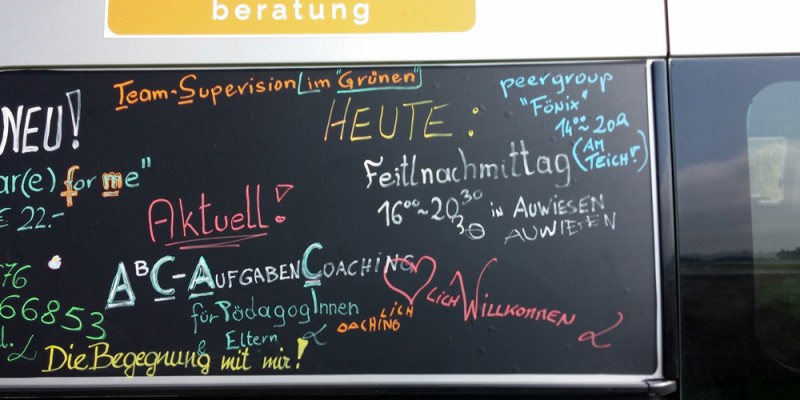 beratung
Team-Supervision im "Grünen"
peergroup
"Fönix"
14⁰⁰~20⁰
(AM
TEICH!)
NEU!
HEUTE:
ar(e) for me"
€ 22.-
Feitlnachmittag
16⁰⁰~20³⁰
30
in AUWIESEN
AUWIESEN
Aktuell!
76
66853
ABC-AUFGABENCOACHING
für PädagogInnen
& Eltern
LICH
OACHING
♥LICH WILLKOMMEN
Die Begegnung mit mir!